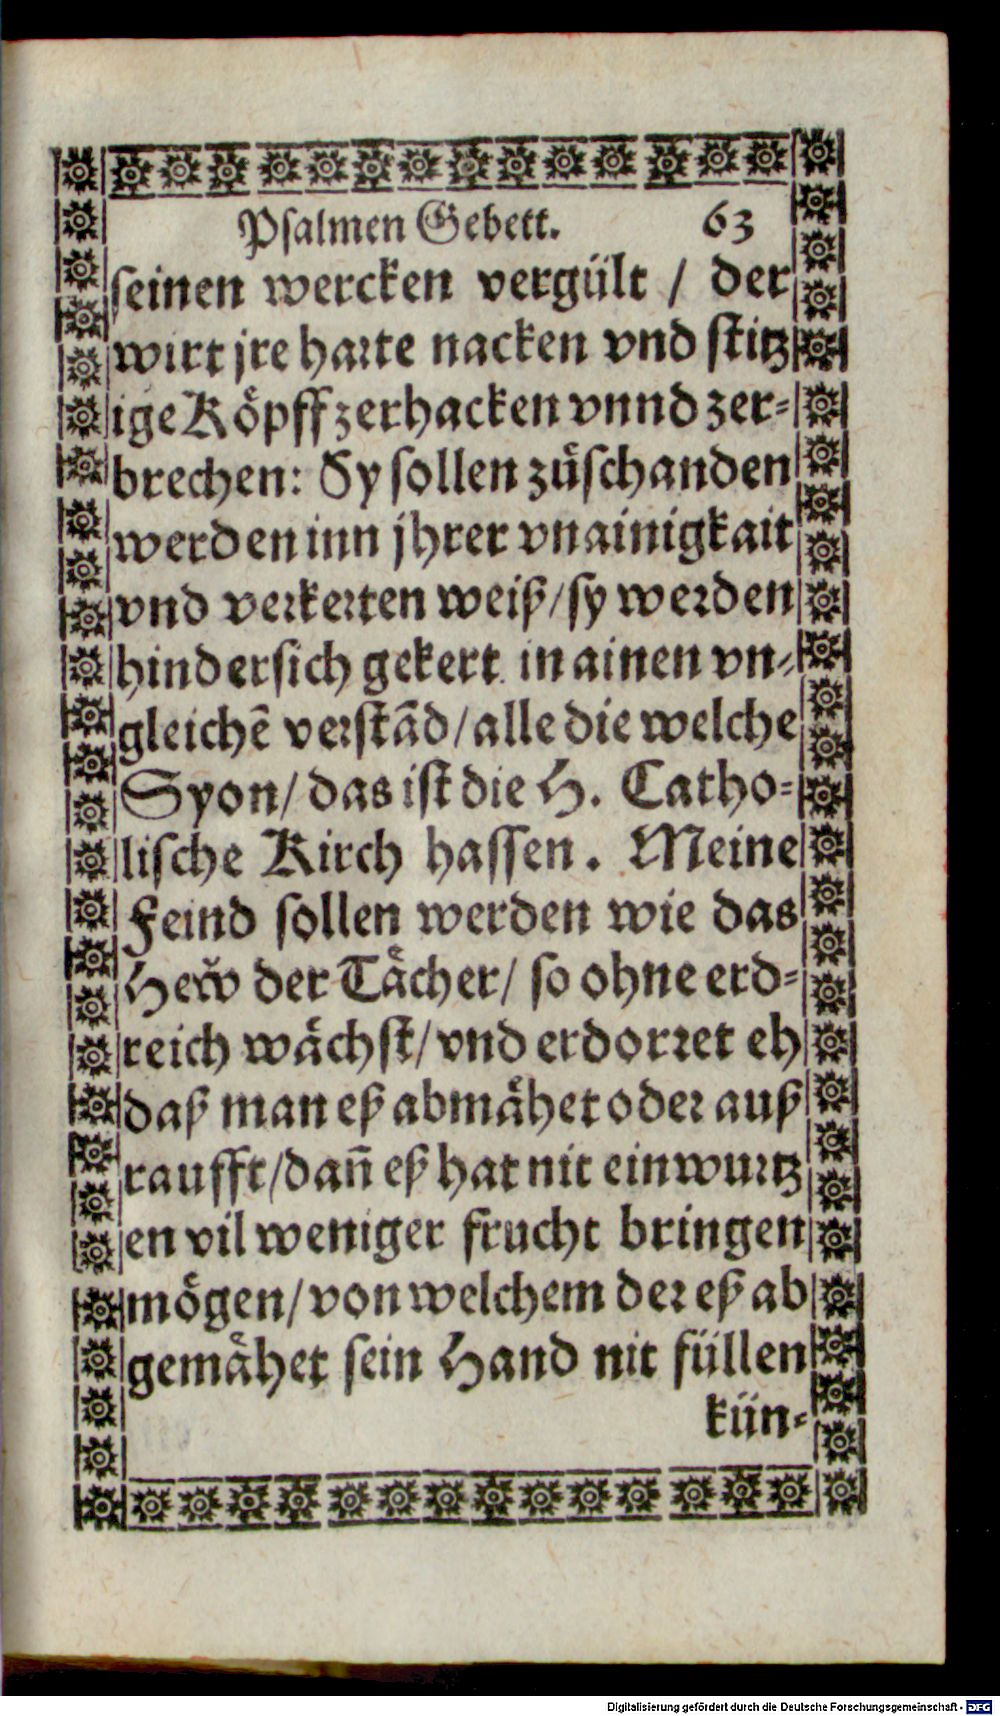 Psalmen Gebett. 63
seinen wercken vergült / der
wirt jre harte nacken vnd stitz
ige Köpff zerhacken vnnd zer⸗
brechen: Sy sollen zůschanden
werden inn jhrer vnainigkait
vnd verkerten weiß / sy werden
hindersich gekert in ainen vn⸗
gleichẽ verstãd / alle die welche
Syon / das ist die H. Catho⸗
lische Kirch hassen. Meine
Feind sollen werden wie das
Hew̌ der Tächer / so ohne erd⸗
reich wächst / vnd erdorret eh
daß man eß abmähet oder auß
raufft / dañ eß hat nit ein wurtz
en vil weniger frucht bringen
mögen / von welchem der eß ab
gemähet sein Hand nit füllen
kün⸗
Digitalisierung gefördert durch die Deutsche Forschungsgemeinschaft - DFG